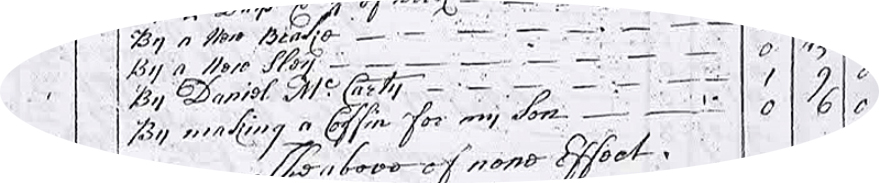 of
By a New Beasie — — — — 0
By a New Sley — — — — 1 9
By Daniel Mc. Carty — — — — 0 6 0
By making a Coffin for my Son — —
The above of none Effect.